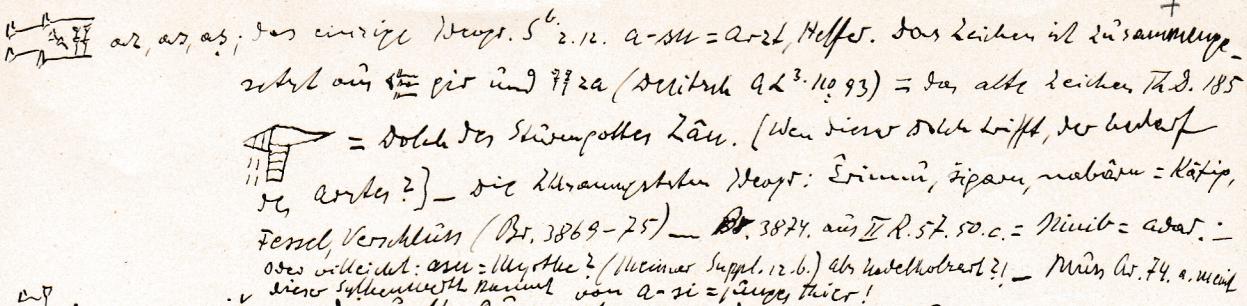 az, as, aṣ; das einzige Ideogr. S^b 2.12. a-su = Arzt, Helfer. Das Zeichen ist zusammenge-
setzt aus gir und za (Delitzsch AL³. No 93) = das alte Zeichen Th.D. 185
= Dolch des Sturmgottes Zâu. (Wen dieser Dolch trifft, der bedarf
des Arztes?) – Die Ideogr: Erinnu, šigaru, nabâru = Käfig,
Fessel, Verschluss (Br. 3869–75) — Br. 3874. aus II R. 57. 50. c. = Ninib = adar. –
oder villeicht: asu = Myrthe? (Meissner Suppl. 12. b.) als Nadelholzart?! –
dieser Sylbenwerth kommt von a-si = junges Thier!